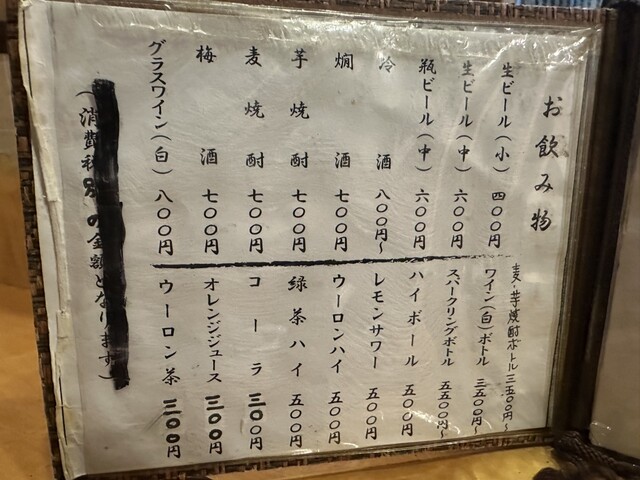 お飲み物
生ビール(小) 四〇〇円
生ビール(中) 六〇〇円
瓶ビール(中) 六〇〇円
冷酒 八〇〇円~
燗酒 七〇〇円
芋焼酎 七〇〇円
麦焼酎 七〇〇円
梅酒 七〇〇円
グラスワイン(白) 八〇〇円
麦・芋焼酎ボトル 三五〇〇円~
ワイン(白)ボトル 三五〇〇円~
スパークリングボトル 五五〇〇円~
ハイボール 五〇〇円
レモンサワー 五〇〇円
ウーロンハイ 五〇〇円
緑茶ハイ 五〇〇円
コーラ 三〇〇円
オレンジジュース 三〇〇円
ウーロン茶 三〇〇円
(消費税別の金額となります)